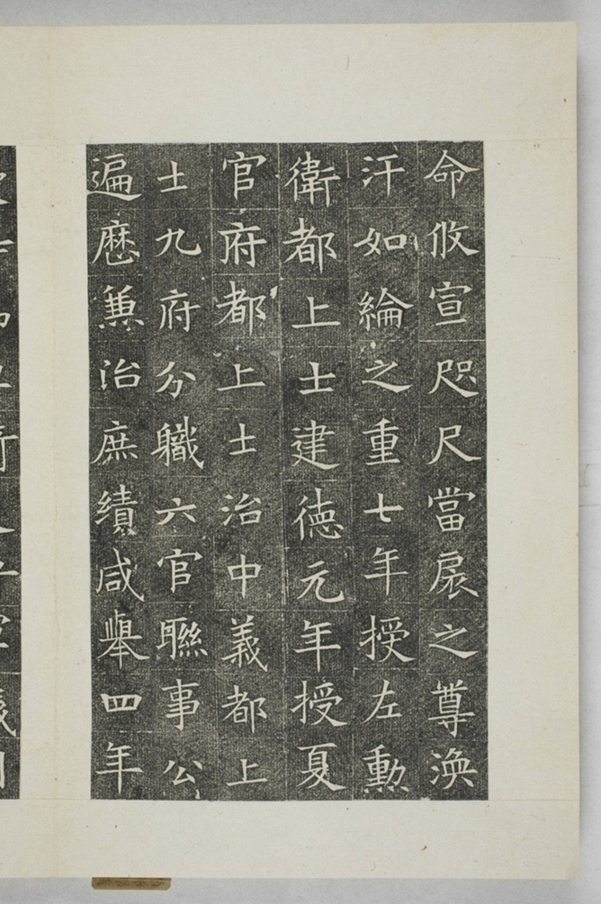 命攸宣咫尺當扆之尊渙
汗如綸之重七年授左勳
衛都上士建德元年授夏
官府都上士治中義都上
士九府分職六官聯事公
遍歷兼治庶績咸舉四年